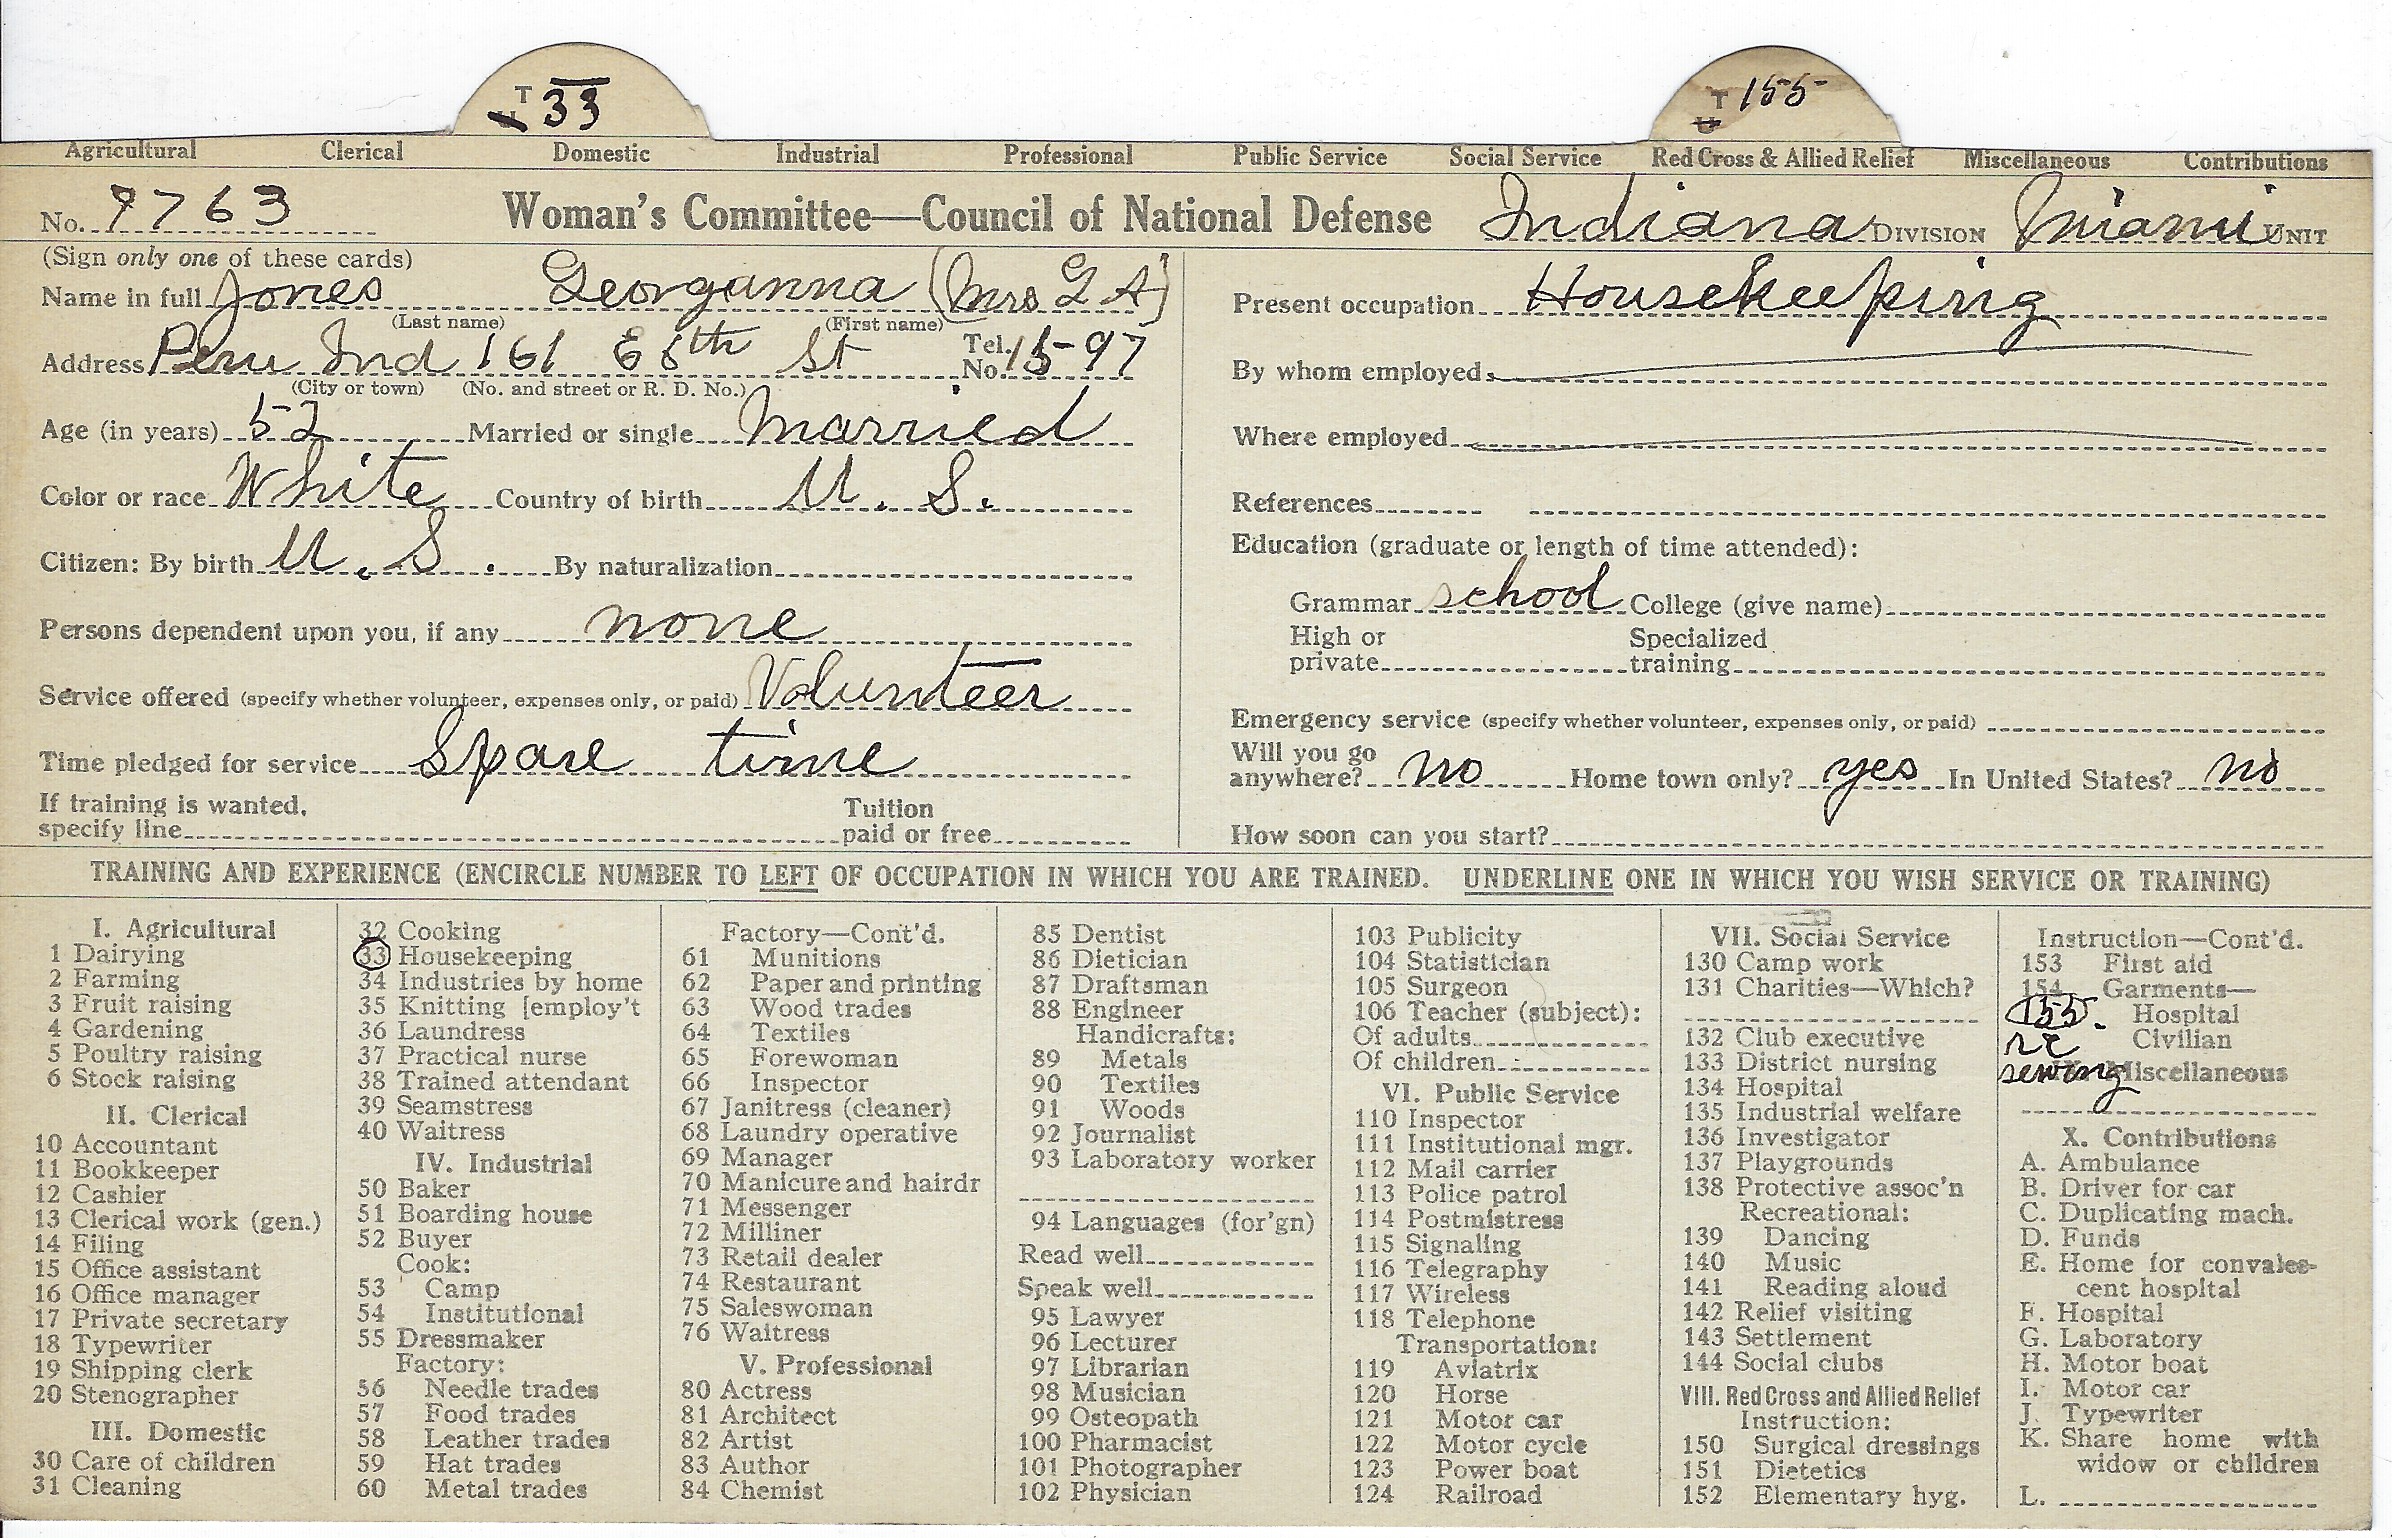 T 33
T 155
U
Agricultural Clerical Domestic Industrial Professional Public Service Social Service Red Cross & Allied Relief Miscellaneous Contributions
No. 9763 Woman's Committee—Council of National Defense Indiana DIVISION Miami UNIT
(Sign only one of these cards)
Name in full Jones Georganna (Mrs G A)
(Last name) (First name)
Address Peru Ind 161 E 6th St Tel. No. 1597
(City or town) (No. and street or R. D. No.)
Age (in years) 52 Married or single Married
Color or race White Country of birth U. S.
Citizen: By birth U. S. By naturalization
Persons dependent upon you, if any none
Service offered (specify whether volunteer, expenses only, or paid) Volunteer
Time pledged for service Spare time
If training is wanted, specify line Tuition paid or free
Present occupation Housekeeping
By whom employed
Where employed
References
Education (graduate or length of time attended):
Grammar school College (give name)
High or private Specialized training
Emergency service (specify whether volunteer, expenses only, or paid)
Will you go anywhere? no Home town only? yes In United States? no
How soon can you start?
TRAINING AND EXPERIENCE (ENCIRCLE NUMBER TO LEFT OF OCCUPATION IN WHICH YOU ARE TRAINED. UNDERLINE ONE IN WHICH YOU WISH SERVICE OR TRAINING)
I. Agricultural
1 Dairying
2 Farming
3 Fruit raising
4 Gardening
5 Poultry raising
6 Stock raising
II. Clerical
10 Accountant
11 Bookkeeper
12 Cashier
13 Clerical work (gen.)
14 Filing
15 Office assistant
16 Office manager
17 Private secretary
18 Typewriter
19 Shipping clerk
20 Stenographer
III. Domestic
30 Care of children
31 Cleaning
32 Cooking
33 Housekeeping
34 Industries by home
35 Knitting [employ't
36 Laundress
37 Practical nurse
38 Trained attendant
39 Seamstress
40 Waitress
IV. Industrial
50 Baker
51 Boarding house
52 Buyer
Cook:
53 Camp
54 Institutional
55 Dressmaker
Factory:
56 Needle trades
57 Food trades
58 Leather trades
59 Hat trades
60 Metal trades
Factory—Cont'd.
61 Munitions
62 Paper and printing
63 Wood trades
64 Textiles
65 Forewoman
66 Inspector
67 Janitress (cleaner)
68 Laundry operative
69 Manager
70 Manicure and hairdr
71 Messenger
72 Milliner
73 Retail dealer
74 Restaurant
75 Saleswoman
76 Waitress
V. Professional
80 Actress
81 Architect
82 Artist
83 Author
84 Chemist
85 Dentist
86 Dietician
87 Draftsman
88 Engineer
Handicrafts:
89 Metals
90 Textiles
91 Woods
92 Journalist
93 Laboratory worker
94 Languages (for'gn)
Read well
Speak well
95 Lawyer
96 Lecturer
97 Librarian
98 Musician
99 Osteopath
100 Pharmacist
101 Photographer
102 Physician
103 Publicity
104 Statistician
105 Surgeon
106 Teacher (subject):
Of adults
Of children
VI. Public Service
110 Inspector
111 Institutional mgr.
112 Mail carrier
113 Police patrol
114 Postmistress
115 Signaling
116 Telegraphy
117 Wireless
118 Telephone
Transportation:
119 Aviatrix
120 Horse
121 Motor car
122 Motor cycle
123 Power boat
124 Railroad
VII. Social Service
130 Camp work
131 Charities—Which?
132 Club executive
133 District nursing
134 Hospital
135 Industrial welfare
136 Investigator
137 Playgrounds
138 Protective assoc'n
Recreational:
139 Dancing
140 Music
141 Reading aloud
142 Relief visiting
143 Settlement
144 Social clubs
VIII. Red Cross and Allied Relief
Instruction:
150 Surgical dressings
151 Dietetics
152 Elementary hyg.
Instruction—Cont'd.
153 First aid
154 Garments—
155. Hospital
Civilian
sewing Miscellaneous
X. Contributions
A. Ambulance
B. Driver for car
C. Duplicating mach.
D. Funds
E. Home for convales-
cent hospital
F. Hospital
G. Laboratory
H. Motor boat
I. Motor car
J. Typewriter
K. Share home with
widow or children
L.